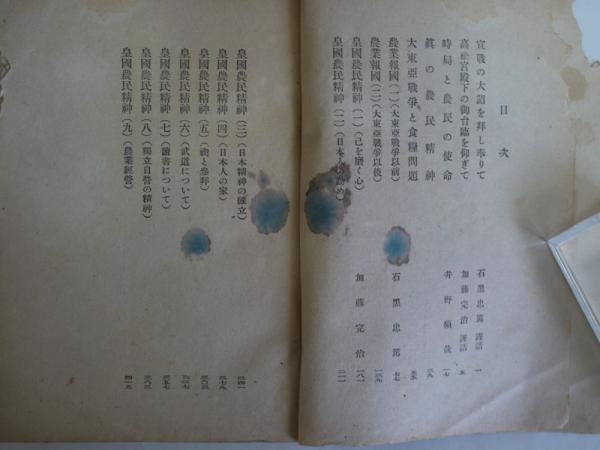 目次
宣戰の大詔を拜し奉りて 石黑忠篤謹話 一
高松宮殿下の御台臨を仰ぎて 加藤完治謹話 五
時局と農民の使命 井野碩哉 一七
眞の農民精神
大東亞戰爭と食糧問題
農業報國(一)(大東亞戰爭以前) 石黑忠篤 七七
農業報國(二)(大東亞戰爭以後)
皇國農民精神(一)(己を磨く心) 加藤完治
皇國農民精神(二)(日本
皇國農民精神(三)(日本精神の確立)
皇國農民精神(四)(日本人の家)
皇國農民精神(五)(と參拜)
皇國農民精神(六)(武道について)
皇國農民精神(七)(讀書について)
皇國農民精神(八)(獨立自營の精神)
皇國農民精神(九)(農業經營)